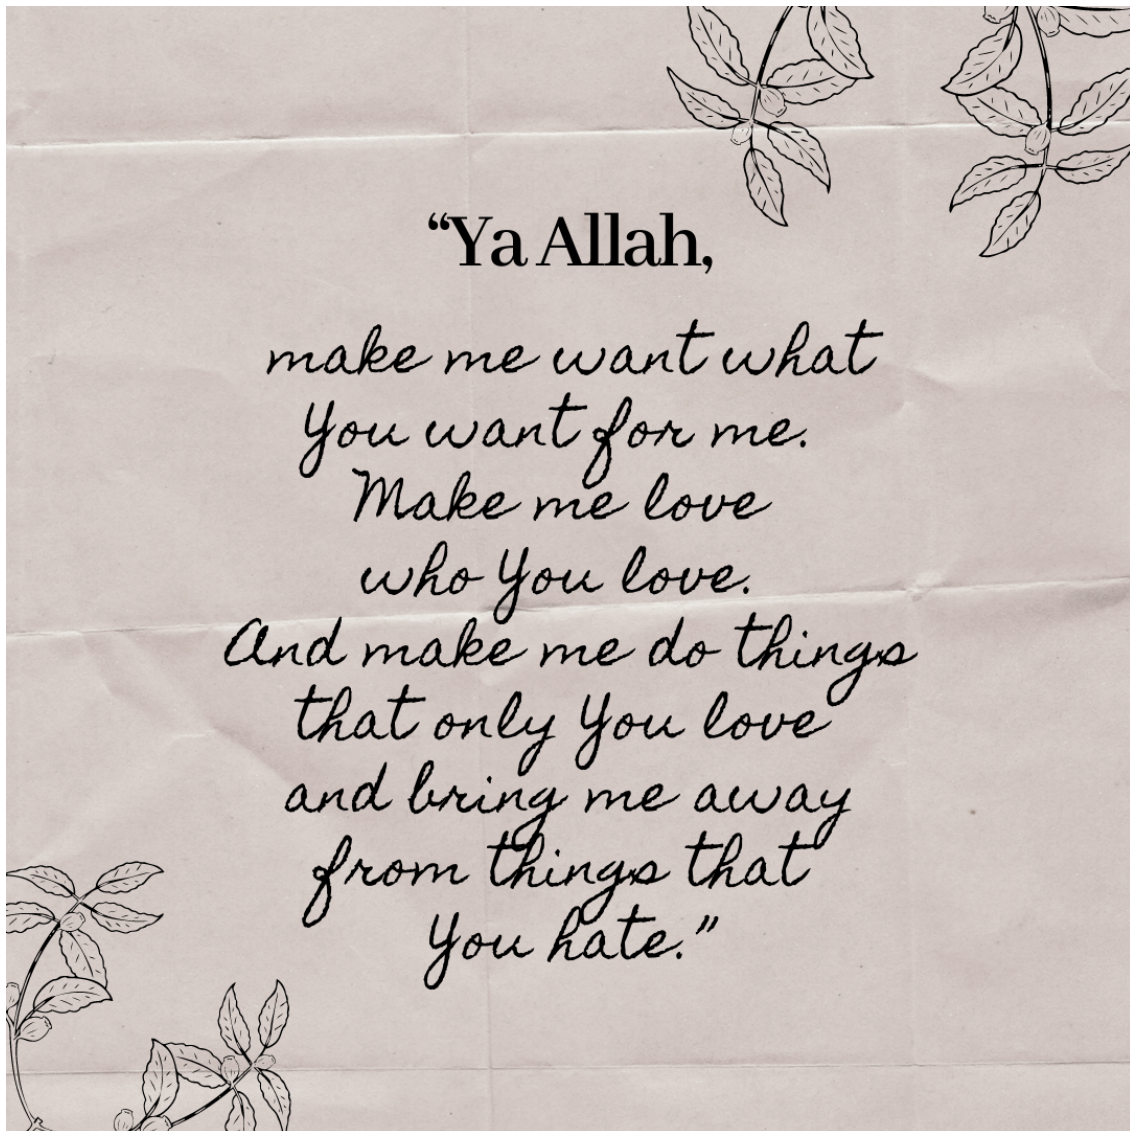 “Ya Allah,
make me want what
You want for me.
Make me love
who You love.
And make me do things
that only You love
and bring me away
from things that
You hate.”